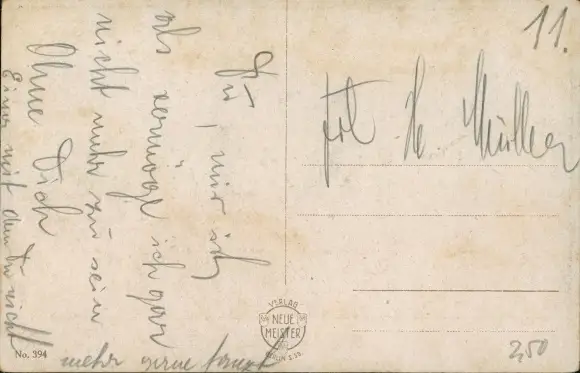 11.
Frl. H. Müller
Du, mir ist
als vermöge ich gar
nicht mehr zu sein
Ohne Dich
Einer mit dem Du nicht
mehr gerne tanzt
VERLAG
NEUE
MEISTER
BERLIN S.59.
No. 394
2,50